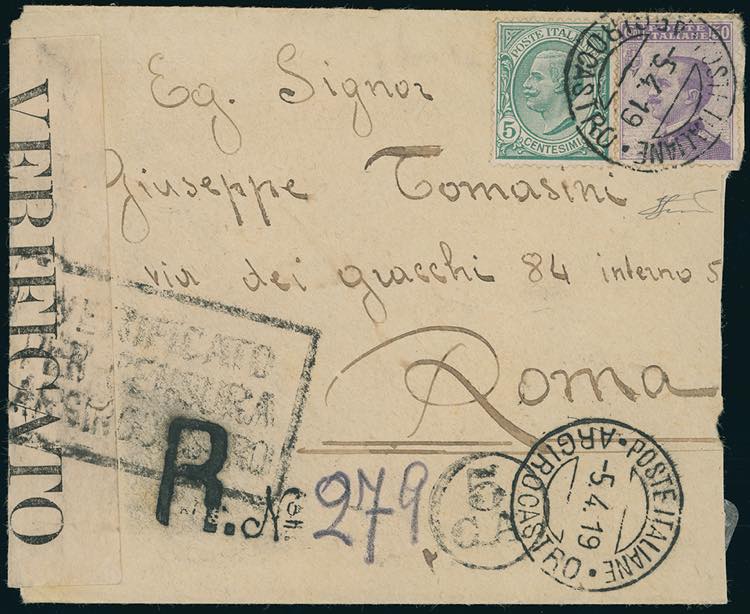 VERIFICATO
Eg. Signor
Giuseppe Tomasini
via dei gracchi 84 interno 5
Roma
POSTE ITALIANE
5
CENTESIMI
POSTE
ITALIANE 50
POSTE ITALIANE • ARGIROCASTRO •
-5.4.19
VERIFICATO
PER CENSURA
R. N.
279
5
C.A
POSTE ITALIANE • ARGIROCASTRO •
-5.4.19